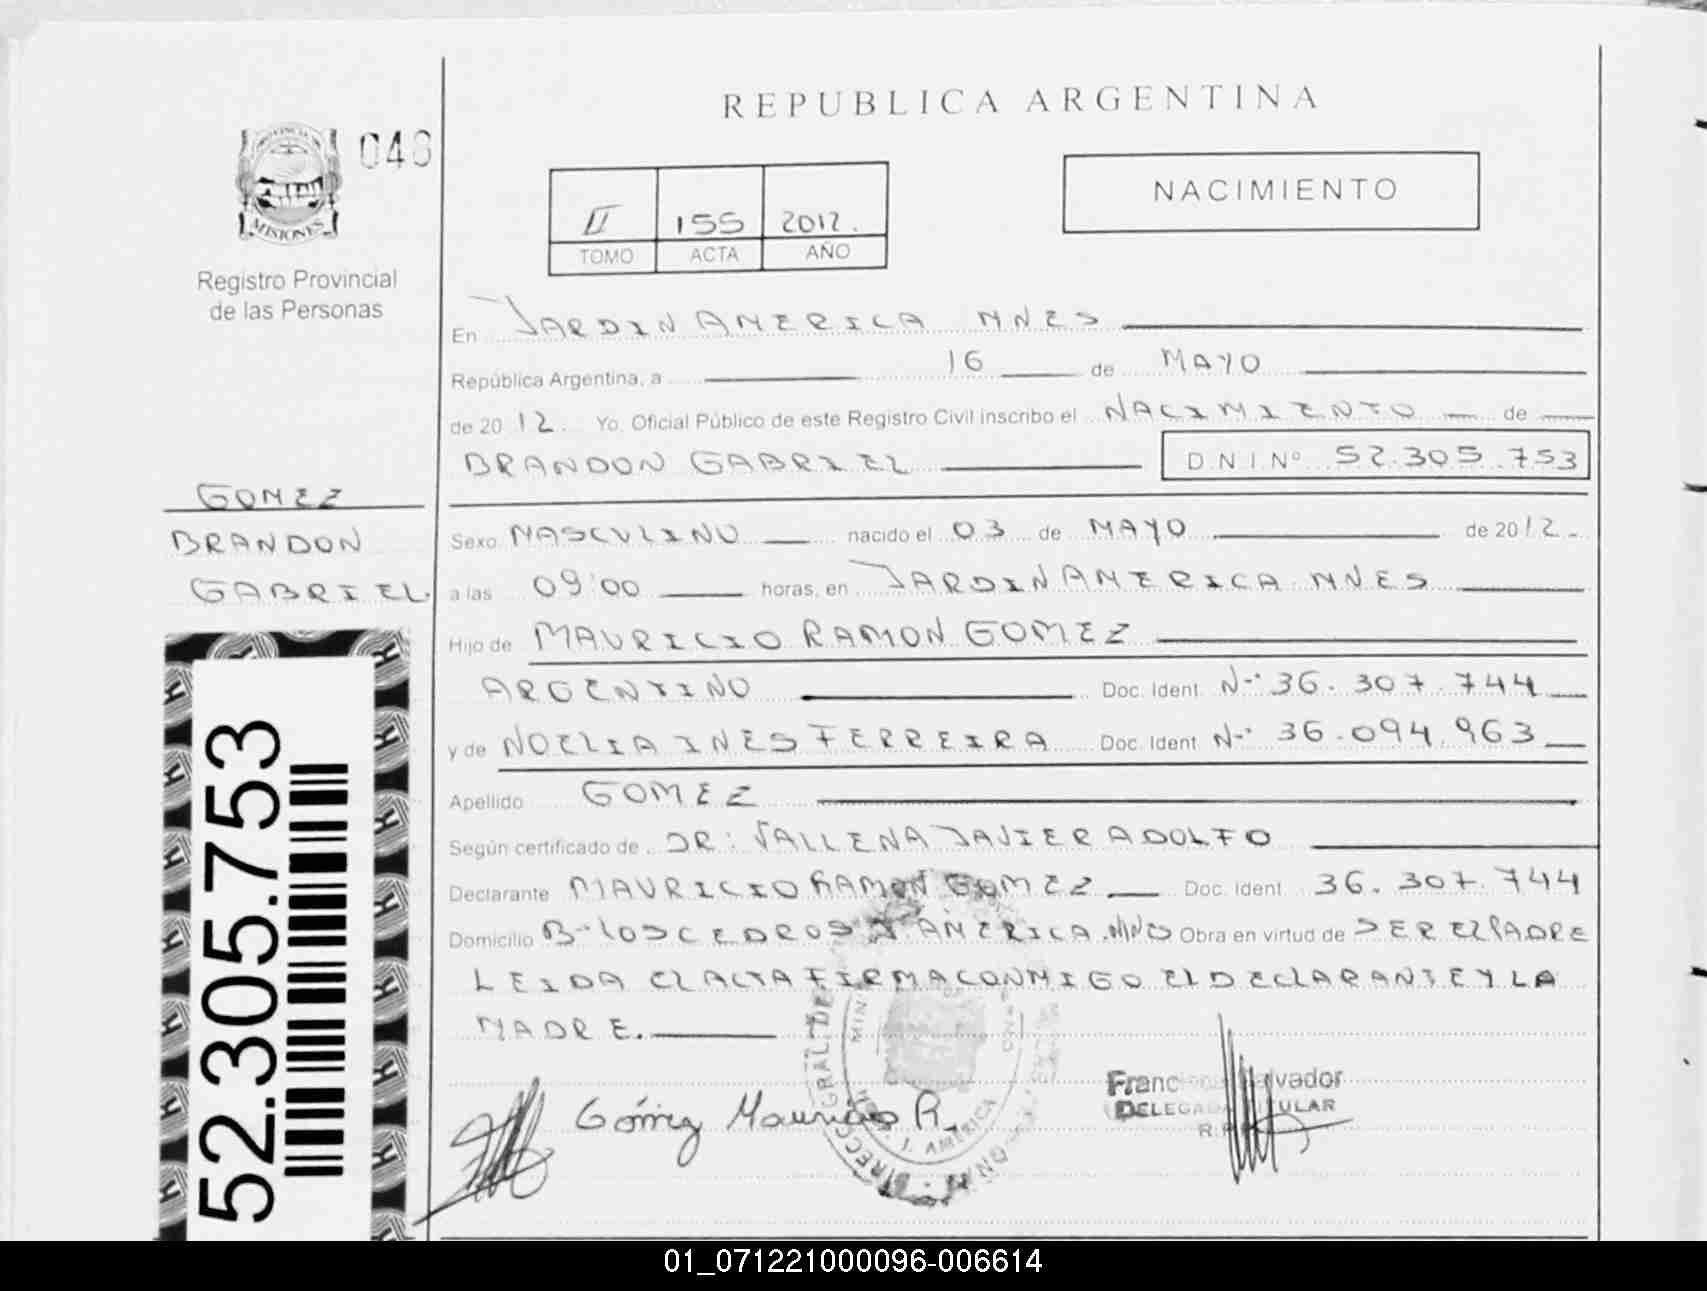 REPUBLICA ARGENTINA
046
MISIONES
Registro Provincial
de las Personas
II 155 2012.
TOMO ACTA AÑO
NACIMIENTO
En JARDIN AMERICA MNES
República Argentina, a 16 de MAYO
de 2012. Yo, Oficial Público de este Registro Civil inscribo el NACIMIENTO de
BRANDON GABRIEL D.N.I. Nº 52.305.753
GOMEZ
BRANDON
GABRIEL.
Sexo MASCULINO nacido el 03 de MAYO de 2012.
a las 09:00 horas, en JARDIN AMERICA MNES
Hijo de MAURICIO RAMON GOMEZ
ARGENTINO Doc. Ident. Nº 36.307.744
y de NOELIA INES FERREIRA Doc. Ident. Nº 36.094.963
Apellido GOMEZ
Según certificado de DR: VALLENA JAVIER ADOLFO
Declarante MAURICIO RAMON GOMEZ Doc. Ident. 36.307.744
Domicilio Bº LOS CEDROS J AMERICA.MNES Obra en virtud de SER EL PADRE
LEIDA EL ACTA FIRMA CONMIGO EL DECLARANTE Y LA
MADRE.
Gómez Mauricio R.
DELEGADA TITULAR
J. AMERICA
52.305.753
01_071221000096-006614